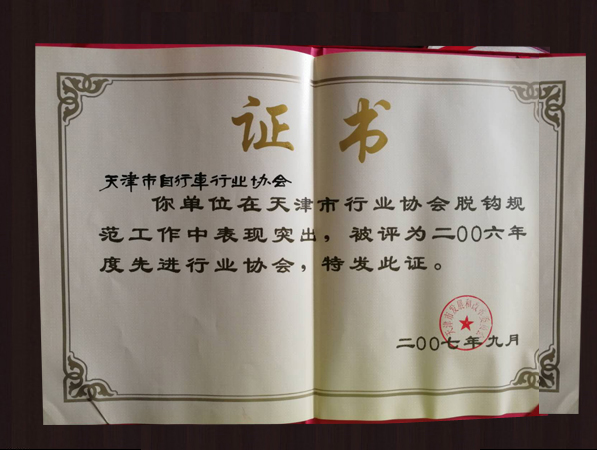 证书
天津市自行车行业协会
你单位在天津市行业协会脱钩规
范工作中表现突出，被评为二00六年
度先进行业协会，特发此证。
二00七年九月